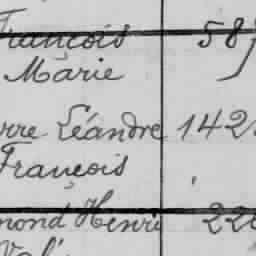 François 58
Marie
rre Léandre 142
François
mond Henri 220